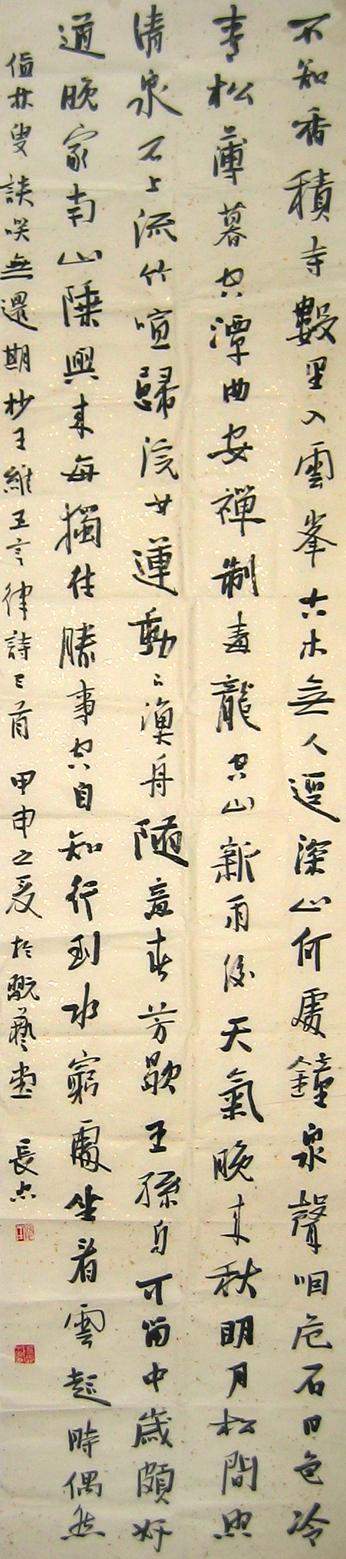 不知香積寺數里入雲峯古木無人逕深山何處鐘泉聲咽危石日色冷
青松薄暮空潭曲安禪制毒龍空山新雨後天氣晚來秋明月松間照
清泉石上流竹喧歸浣女蓮動下漁舟隨意春芳歇王孫自可留中歲頗好
道晚家南山陲興來每獨往勝事空自知行到水窮處坐看雲起時偶然
值林叟談咲無還期抄王維五言律詩三首 甲申之夏於翫藝堂 長